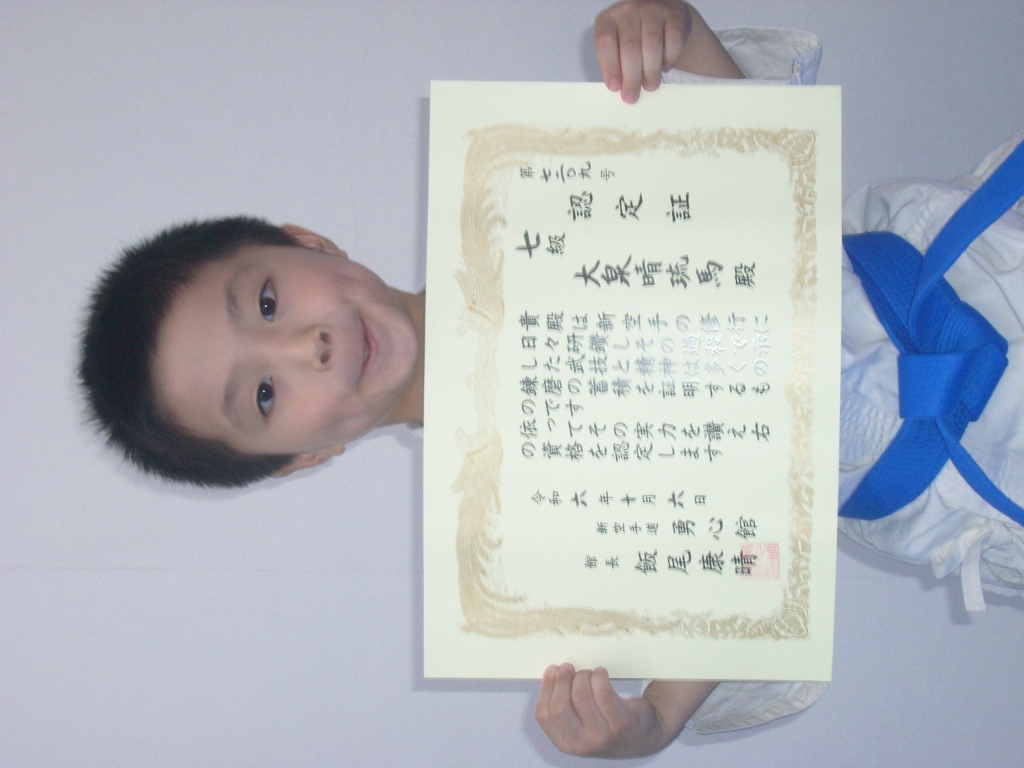 第七二〇九号
認定証
七級
大泉晴琉馬殿
貴殿は新空手の修行に
日々研鑽しその過程で示
した武技と精神は多くの
錬磨の蓄積を証明するも
のです
依ってその実力を讃え右
の資格を認定します
令和六年十月六日
新空手道勇心館
館長飯尾康晴